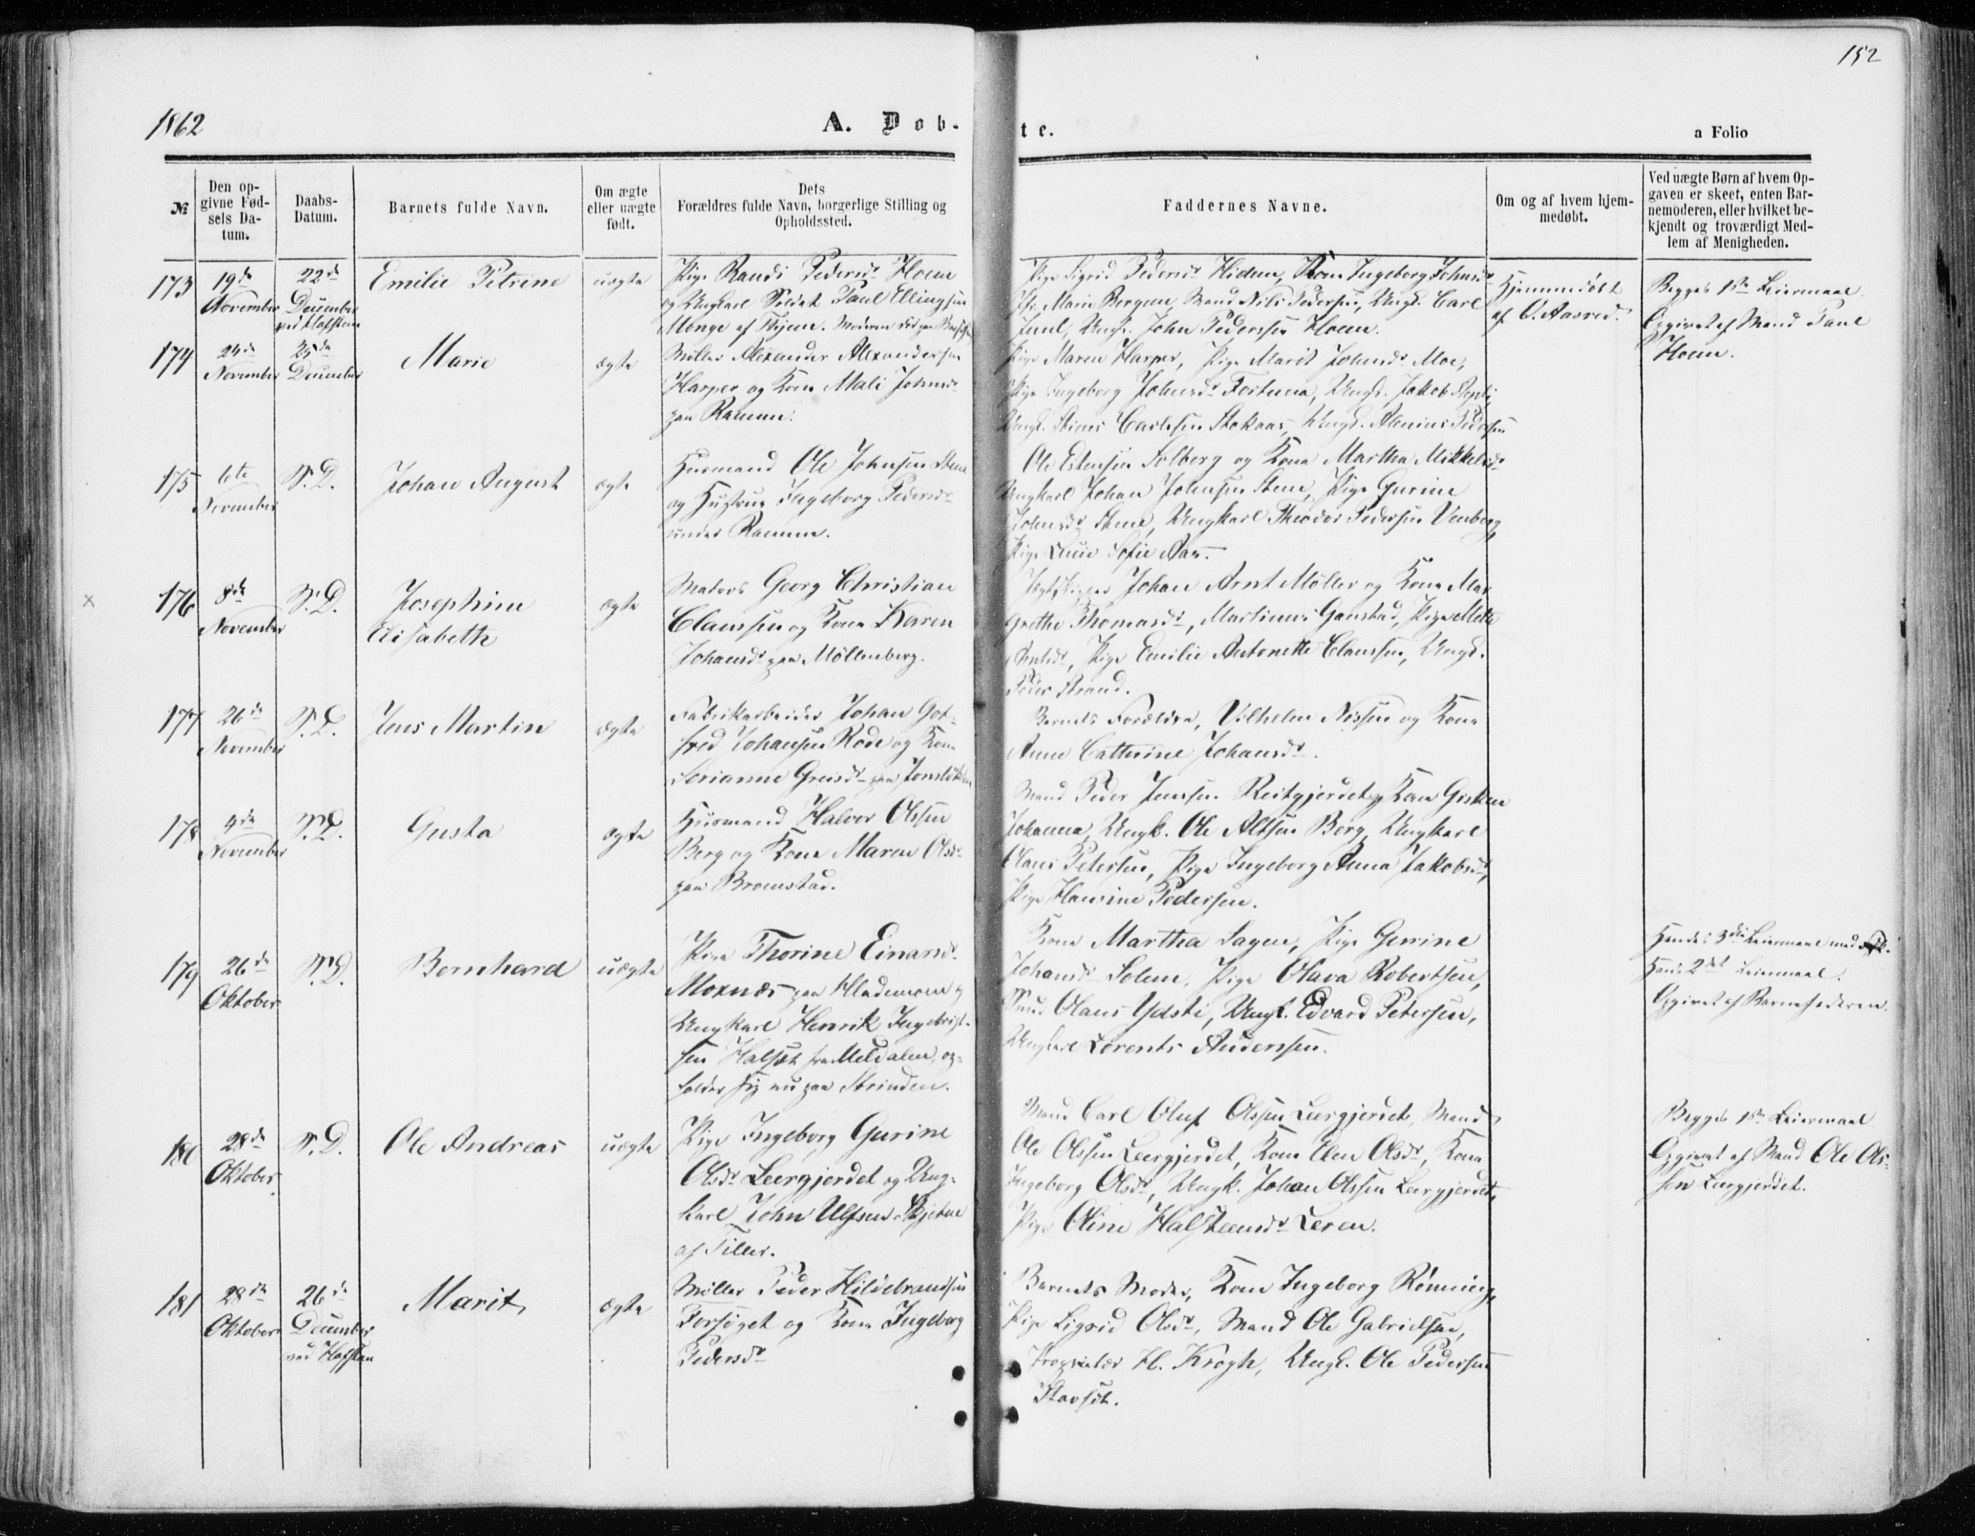 152
1862
A. Døb-
te.
a Folio
№
Den op-
givne Fød-
sels Da-
tum.
Daabs-
Datum.
Barnets fulde Navn.
Om ægte
eller uægte
født.
Dets
Forældres fulde Navn, borgerlige Stilling og
Opholdssted.
Faddernes Navne.
Om og af hvem hjem-
medøbt.
Ved uægte Børn af hvem Op-
gaven er skeet, enten Bar-
nemoderen, eller hvilket be-
kjendt og troværdigt Med-
lem af Menigheden.
173
19de
November
22de
December
ved Hofskau
Emilie Petrine
uægte
Pige Randi Pedersdr Hoem
og Ungkarl Soldat Paul Ellingsen
Monge af Flijem. Moderen
Pige Sigrid Pedersdr Hidem, Kone Ingeborg Johnsdr
Marie Bergum, Mand Nils Pedersen, Ungk. Carl
Juul, Ungk. John Pederssen Hoem.
Hjemmedøbt
af O. Aasred.
Begges 1ste Leiermaal
Opgivet af Mand Paul
Hoem.
174
24de
November
25de
December
Marie
ægte
Møller Alexander Alexandersen
Harper og Kone Mali Johnsdr
paa Ranum.
Pige Maren Harper, Pige Marit Johnsdr Moe,
Pige Ingeborg Johnsdr Fortuna, Ungk. Jakob
Ungk. Carlsen Stokaas, Ungk. Alenius Pedersen
175
6te
November
S. D.
Johan August
ægte
Husmand Ole Johnsen Stene
og Hustrue Ingeborg Pedersdr
under Ranum.
Ole Estensen Solberg og Kone Martha Mikkelsdr
Ungkarl Johan Johnsen Stene, Pige Gurine
Johnsdr Stene, Ungkarl Theodor Pedersen Venberg,
Pige Sofie Aas.
176
8de
November
S. D.
Josephine
Elisabeth
ægte
Matros Georg Christian
Claussen og Kone Karen
Johansdr paa Møllenberg.
Johan Arnt Møller og Kone Mar
grethe Thomasdr, Martinus Ganstad, Pige Mette
Arntsdr, Pige Emilie Antonette Claussen, Ungk.
Peder Strand.
177
26de
November
S. D.
Jens Martin
ægte
Fabrikarbeider Johan Got-
fred Johansen Rode og Kone
Serianne Greisdr paa
Barnets Forældre, Vilhelm Nissen og Kone
Anne Cathrine Johansdr.
178
4de
November
S. D.
Gusta
ægte
Husmand Halvor Olssen
Berg og Kone Maren Olsdr
paa Bromstad.
Mand Peder Jensen Reitgjerdet og Kone Gisken
Johanna, Ungk. Ole Altsen Berg, Ungkarl
Olaus Petersen, Pige Ingeborg Anna Jakobsdr,
Pige Hansine Pedersen.
179
26de
Oktober
S. D.
Bernhard
uægte
Pige Thorine Einarsdr
Moxnæs paa Hlademoen og
Ungkarl Henrik Ingebrigt-
sen Halset fra Meldalen, op-
holder sig nu paa Strinden.
Kone Martha Sagen, Pige Gurine
Johansdr Solem, Pige Olava Robertsen,
Mand Olaus Ydsti, Ungk. Edvard Petersen,
Ungkarl Lorents Anderssen.
Hendes 3die Leiermaal med
Hans 2det Leiermaal.
Opgivet af Barnefaderen.
180
28de
Oktober
S. D.
Ole Andreas
uægte
Pige Ingeborg Gurine
Olsdr Leergjerdet og Ung-
karl John Ulfsen Skjetne
af Tiller.
Mand Carl Oluf Olssen Leergjerdet, Mand
Ole Olssen Leergjerdet, Kone Elen Olsdr, Kone
Ingeborg Olsdr, Ungk. Johan Olssen Leergjerdet,
Pige Oline Halsteensdr Leren.
Begges 1ste Leiermaal
Opgivet af Mand Ole Ols-
sen Leergjerdet.
181
28de
Oktober
26de
December
ved Hofskau
Marit
ægte
Møller Peder Hildebrandsen
Forsøget og Kone Ingeborg
Pedersdr
Barnets Moder, Kone Ingeborg Rønning,
Pige Sigrid Olsdr, Mand Ole Gabrielsen,
Proprietær H. Krogh, Ungk. Ole Pedersen
Stavset.